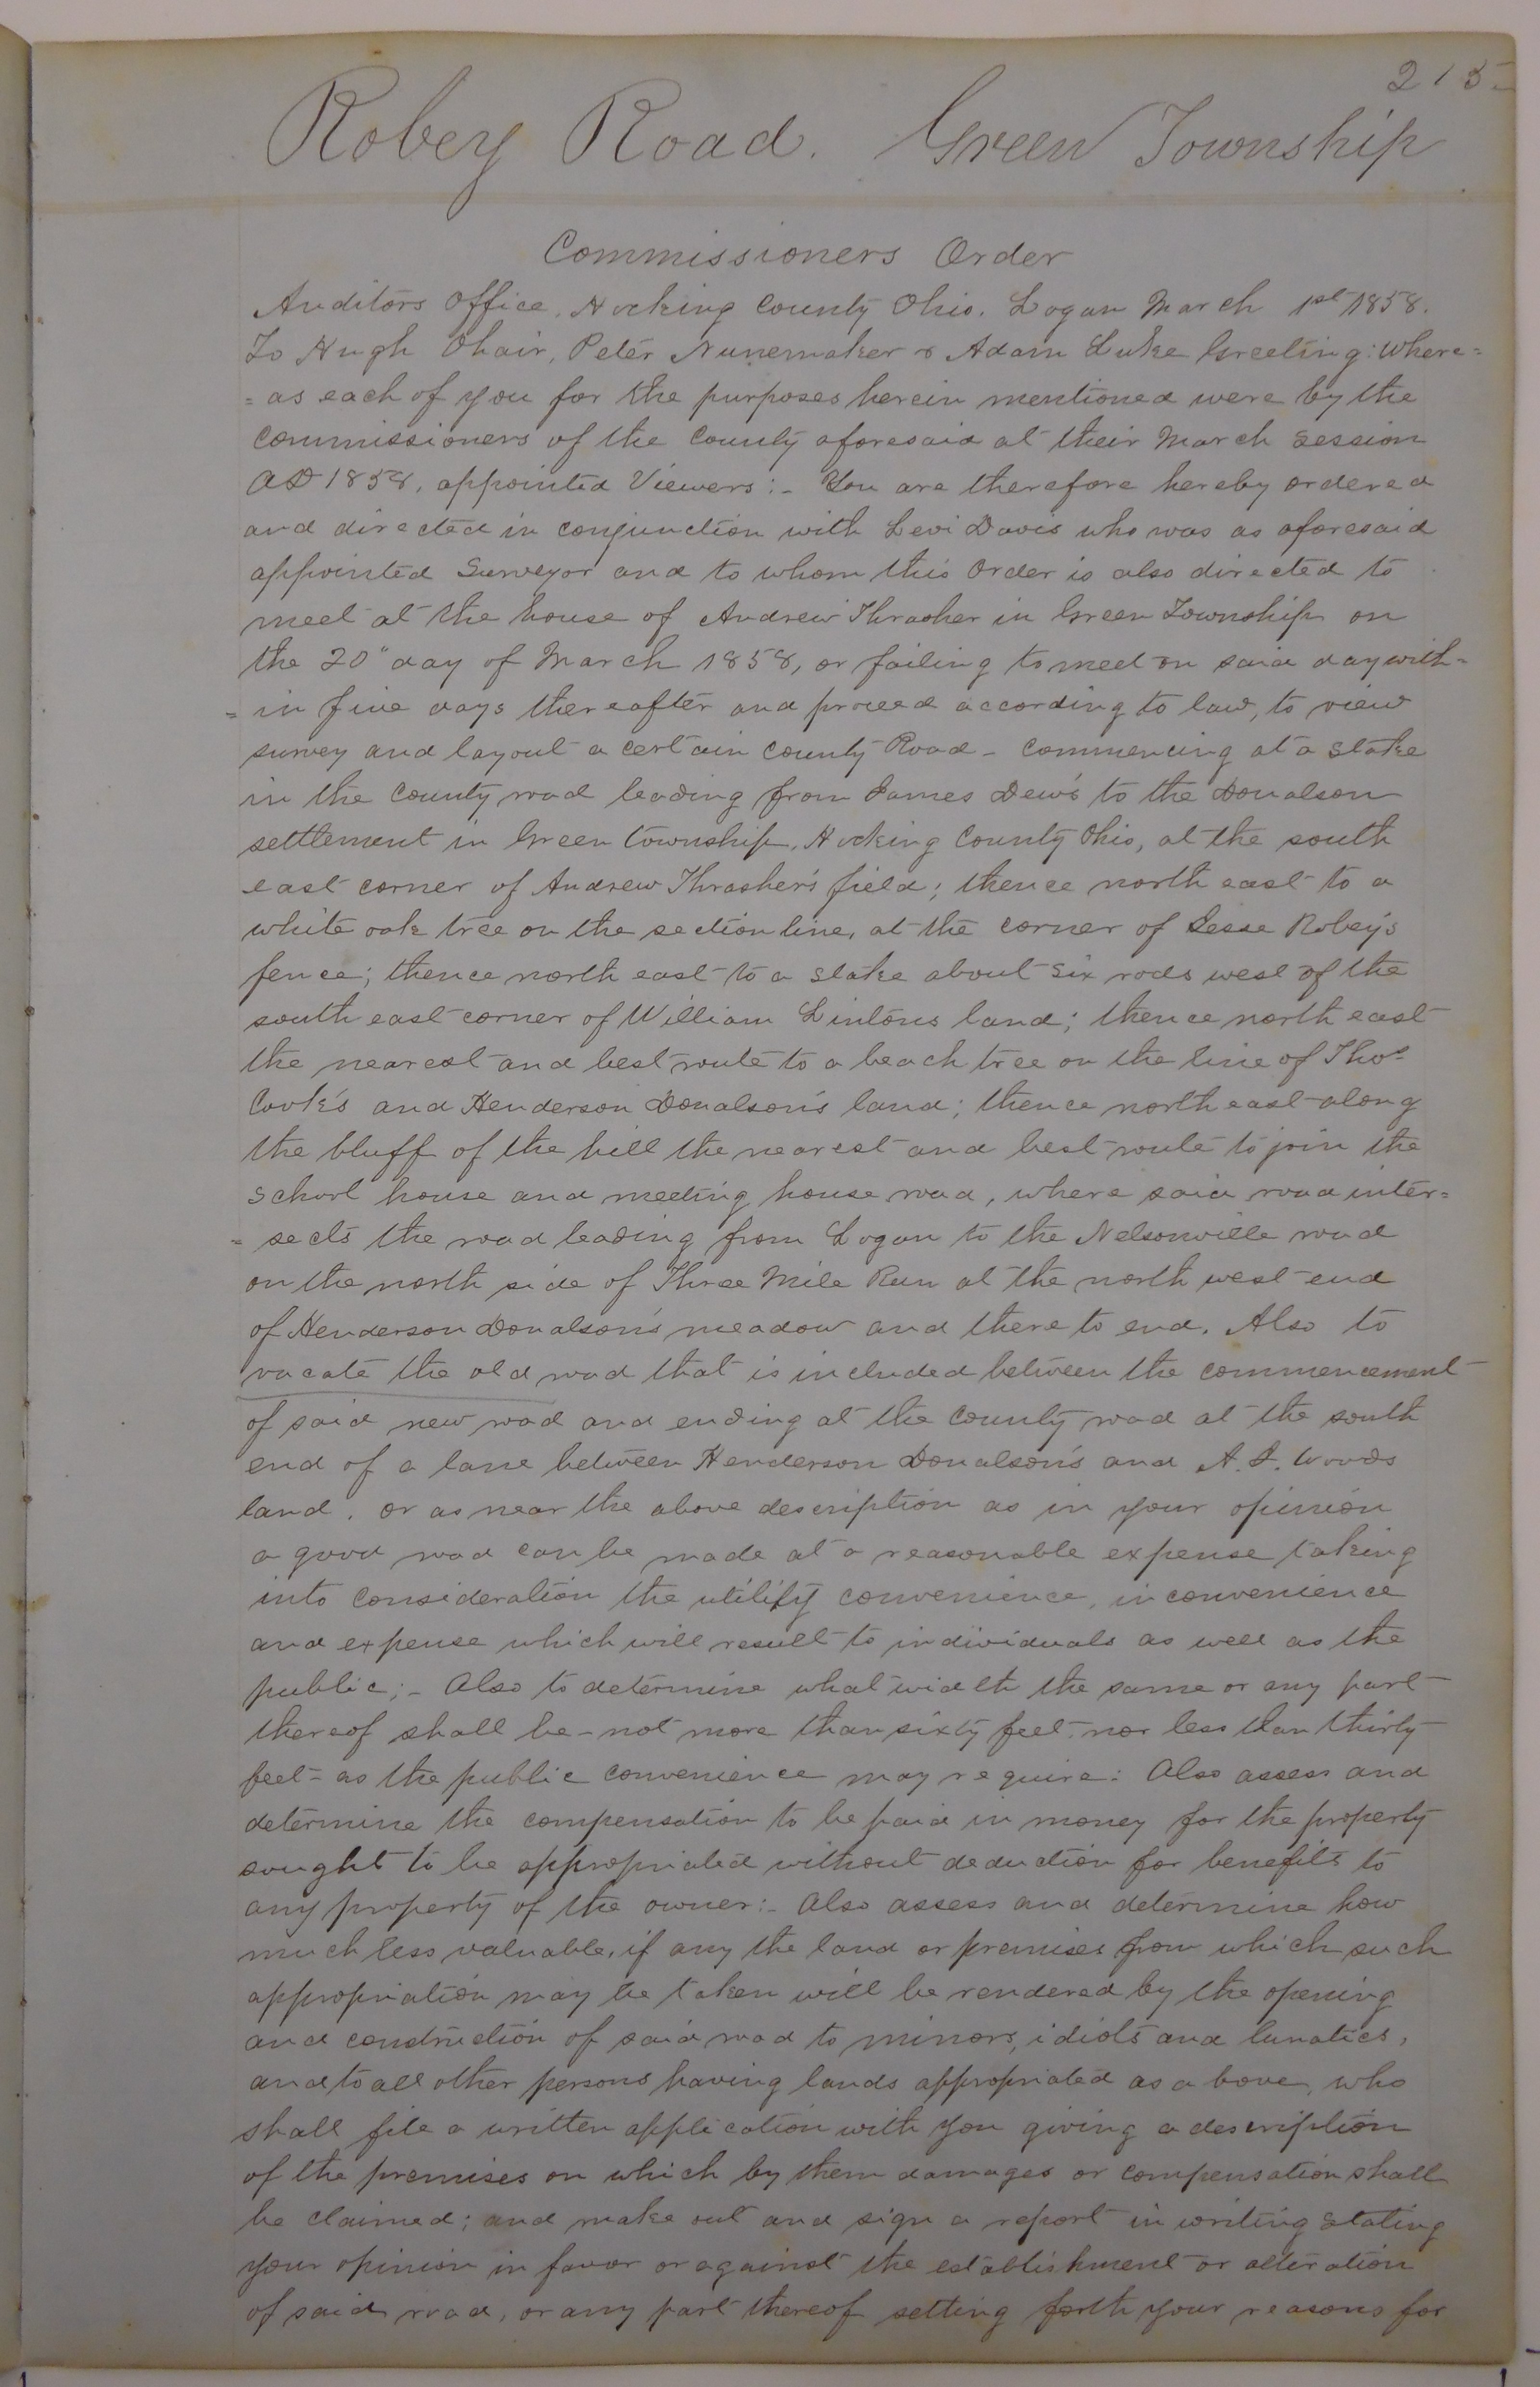 215
Robey Road. Green Township
Commissioners Order
Auditors Office, Hocking County Ohio. Logan March 1st 1858.
To Hugh Ohair, Peter Nunemaker & Adam Luke Greeting: Where=
=as each of you for the purposes herein mentioned were by the
Commissioners of the County aforesaid at their March Session
AD 1858, appointed Viewers:- You are therefore hereby ordered
and directed in conjunction with Levi Davis who was as aforesaid
appointed Surveyor and to whom this Order is also directed to
meet at the house of Andrew Thrasher in Green Township on
the 20" day of March 1858, or failing to meet on said day with=
=in five days thereafter and proceed according to law, to view
survey and layout a certain County Road - Commencing at a Stake
in the County road leading from James Dew's to the Donalson
settlement in Green Township, Hocking County Ohio, at the south
east corner of Andrew Thrasher's field; thence north east to a
white oak tree on the section line, at the corner of Jesse Robey's
fence; thence north east to a stake about six rods west of the
south east corner of William Lintons land; thence north east
the nearest and best route to a beach tree on the line of Thos
Cook's and Henderson Donalson's land; thence north east along
the bluff of the hill the nearest and best route to join the
School house and meeting house road, where said road inter=
=sects the road leading from Logan to the Nelsonville road
on the north side of Three Mile Run at the north west end
of Henderson Donalson's meadow and there to end. Also to
vacate the old road that is included between the commencement
of said new road and ending at the County road at the south
end of a lane between Henderson Donalson's and A. J. Woods
land, or as near the above description as in your opinion
a good road can be made at a reasonable expense taking
into consideration the utility convenience, inconvenience
and expense which will result to individuals as well as the
public;- Also to determine what width the same or any part
thereof shall be - not more than sixty feet, nor less than thirty
feet - as the public convenience may require: Also assess and
determine the compensation to be paid in money for the property
sought to be appropriated without deduction for benefits to
any property of the owner:- Also assess and determine how
much less valuable, if any the land or premises from which such
appropriation may be taken will be rendered by the opening
and construction of said road to minors, idiots and lunatics,
and to all other persons having lands appropriated as above, who
shall file a written application with you giving a description
of the premises on which by them damages or compensation shall
be claimed; and make out and sign a report in writing stating
your opinion in favor or against the establishment or alteration
of said road, or any part thereof setting forth your reasons for